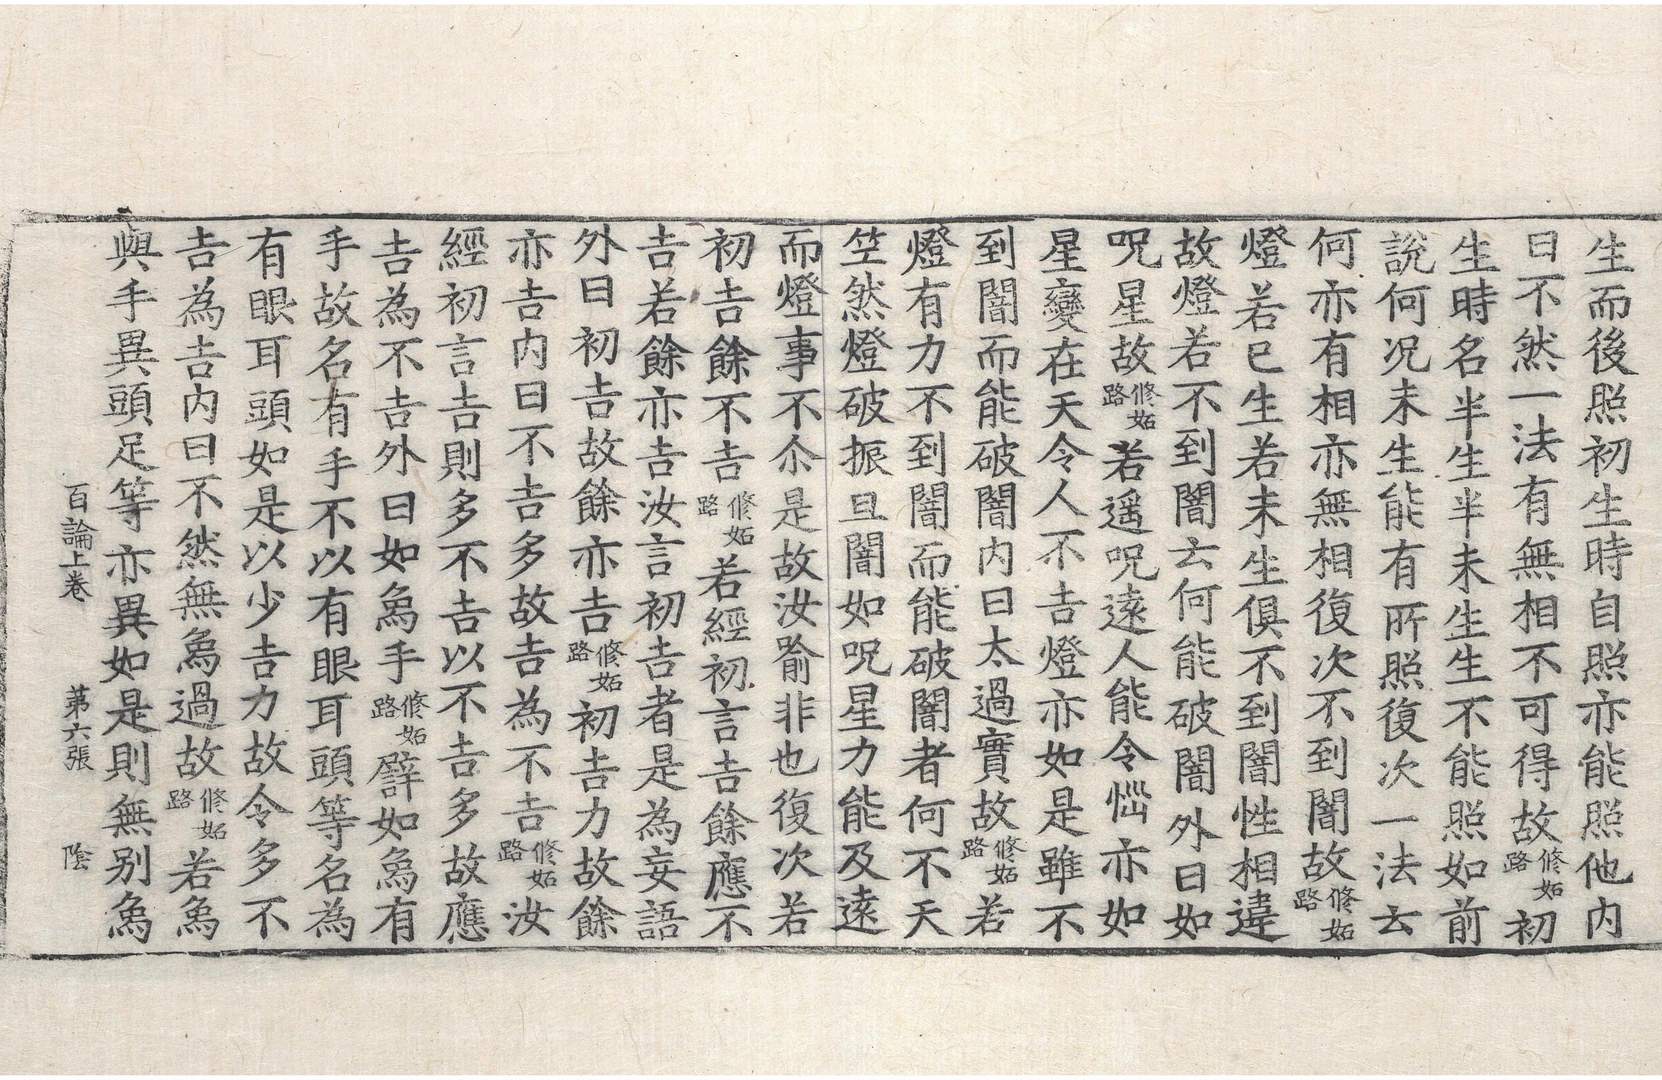 生而後照初生時自照亦能照他内
曰不然一法有無相不可得故修妬路初
生時名半生半未生生不能照如前
說何况未生能有所照復次一法云
何亦有相亦無相復次不到闇故修妬路
燈若已生若未生俱不到闇性相違
故燈若不到闇云何能破闇外曰如
呪星故修妬路若遥呪遠人能令惱亦如
星變在天令人不吉燈亦如是雖不
到闇而能破闇内曰太過實故修妬路若
燈有力不到闇而能破闇者何不天
竺然燈破振旦闇如呪星力能及遠
而燈事不尒是故汝喻非也復次若
初吉餘不吉修妬路若經初言吉餘應不
吉若餘亦吉汝言初吉者是為妄語
外曰初吉故餘亦吉修妬路初吉力故餘
亦吉内曰不吉多故吉為不吉修妬路汝
經初言吉則多不吉以不吉多故應
吉為不吉外曰如象手修妬路譬如象有
手故名有手不以有眼耳頭等名為
有眼耳頭如是以少吉力故令多不
吉為吉内曰不然無象過故修妬路若象
與手異頭足等亦異如是則無别象
百論上卷 第六張 陰